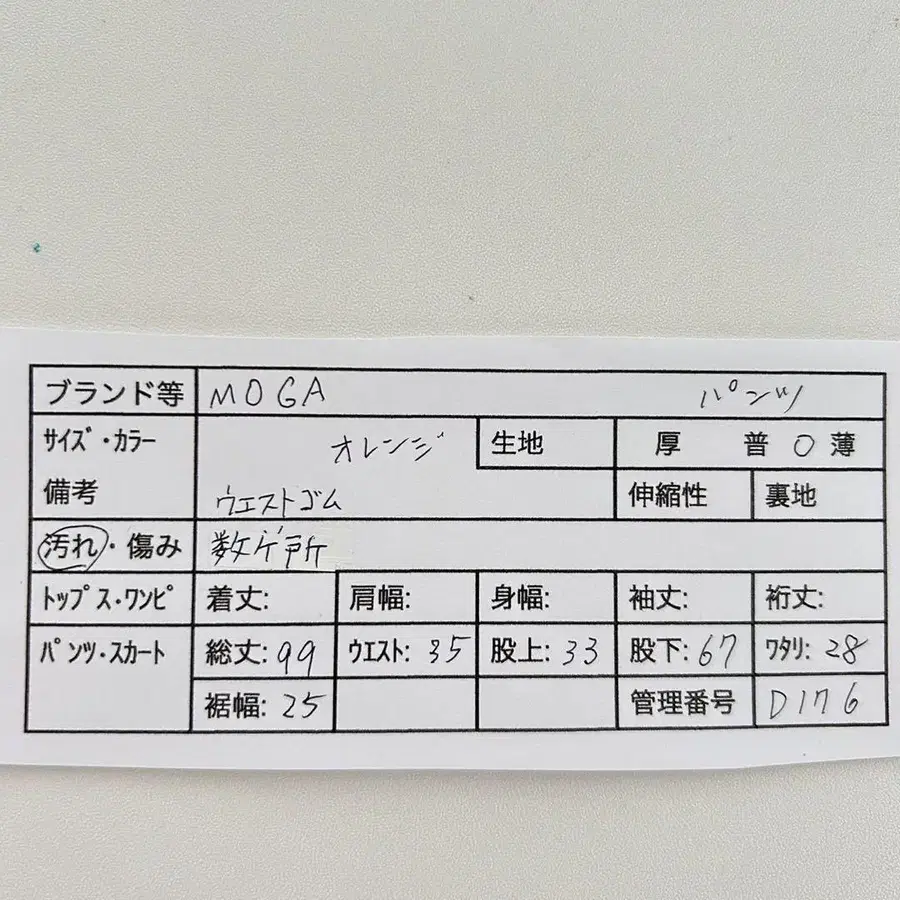 ブランド等 MOGA パンツ
サイズ・カラー オレンジ 生地 厚 普 ○ 薄
備考 ウエストゴム 伸縮性 裏地
汚れ・傷み 数ヶ所
トップス・ワンピ 着丈: 肩幅: 身幅: 袖丈: 裄丈:
パンツ・スカート 総丈: 99 ウエスト: 35 股上: 33 股下: 67 ワタリ: 28
裾幅: 25 管理番号 D176